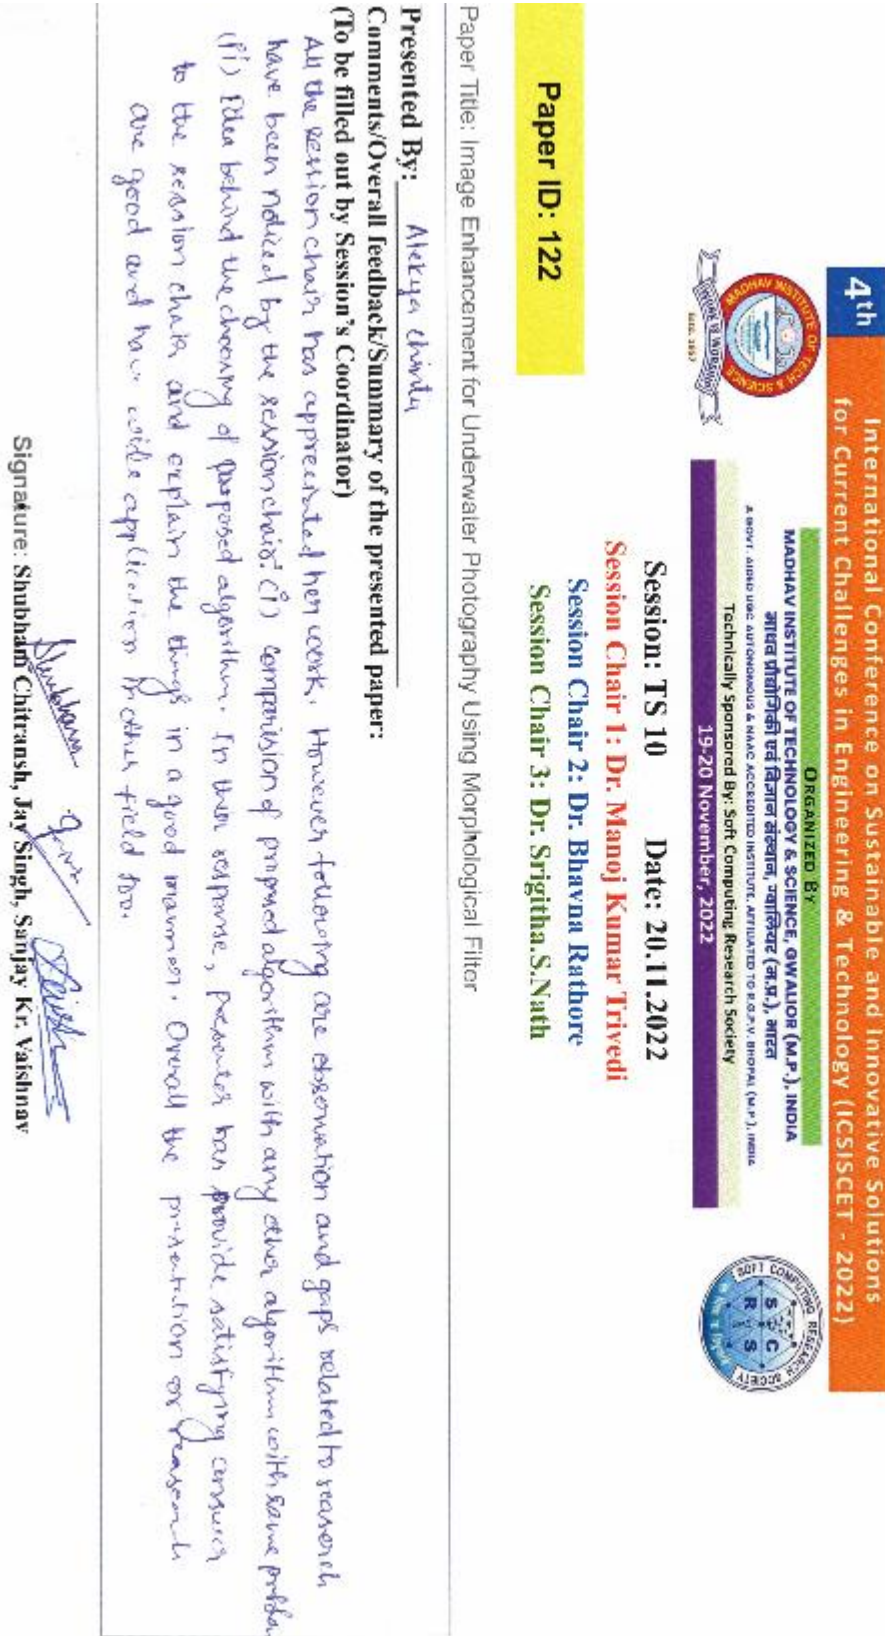 4th
International Conference on Sustainable and Innovative Solutions
for Current Challenges in Engineering & Technology (ICSISCET - 2022)
MADHAV INSTITUTE OF TECH & SCIENCE
ESTD. 1957
ORGANIZED BY
MADHAV INSTITUTE OF TECHNOLOGY & SCIENCE, GWALIOR (M.P.), INDIA
माधव प्रौद्योगिकी एवं विज्ञान संस्थान, ग्वालियर (म.प्र.), भारत
A GOVT. AIDED UGC AUTONOMOUS & NAAC ACCREDITED INSTITUTE, AFFILIATED TO R.G.P.V. BHOPAL (M.P.), INDIA
Technically Sponsored By: Soft Computing Research Society
19-20 November, 2022
SOFT COMPUTING RESEARCH SOCIETY
S C
R S
Session: TS 10 Date: 20.11.2022
Session Chair 1: Dr. Manoj Kumar Trivedi
Session Chair 2: Dr. Bhavna Rathore
Session Chair 3: Dr. Srigitha.S.Nath
Paper ID: 122
Paper Title: Image Enhancement for Underwater Photography Using Morphological Filter
Presented By: Alekya Chintu
Comments/Overall feedback/Summary of the presented paper:
(To be filled out by Session's Coordinator)
All the session chair has appreciated her work. However following are observation and gaps related to research
have been noticed by the session chair. (i) comparision of proposed algorithm with any other algorithm with same problem
(ii) Idea behind the choosing of proposed algorithm. In their response, presenter has provide satisfying answer
to the session chair and explain the things in a good manner. Overall the presentation or research
are good and have wide application in other field too.
Shubham
Signature: Shubham Chitransh, Jay Singh, Sanjay Kr. Vaishnav